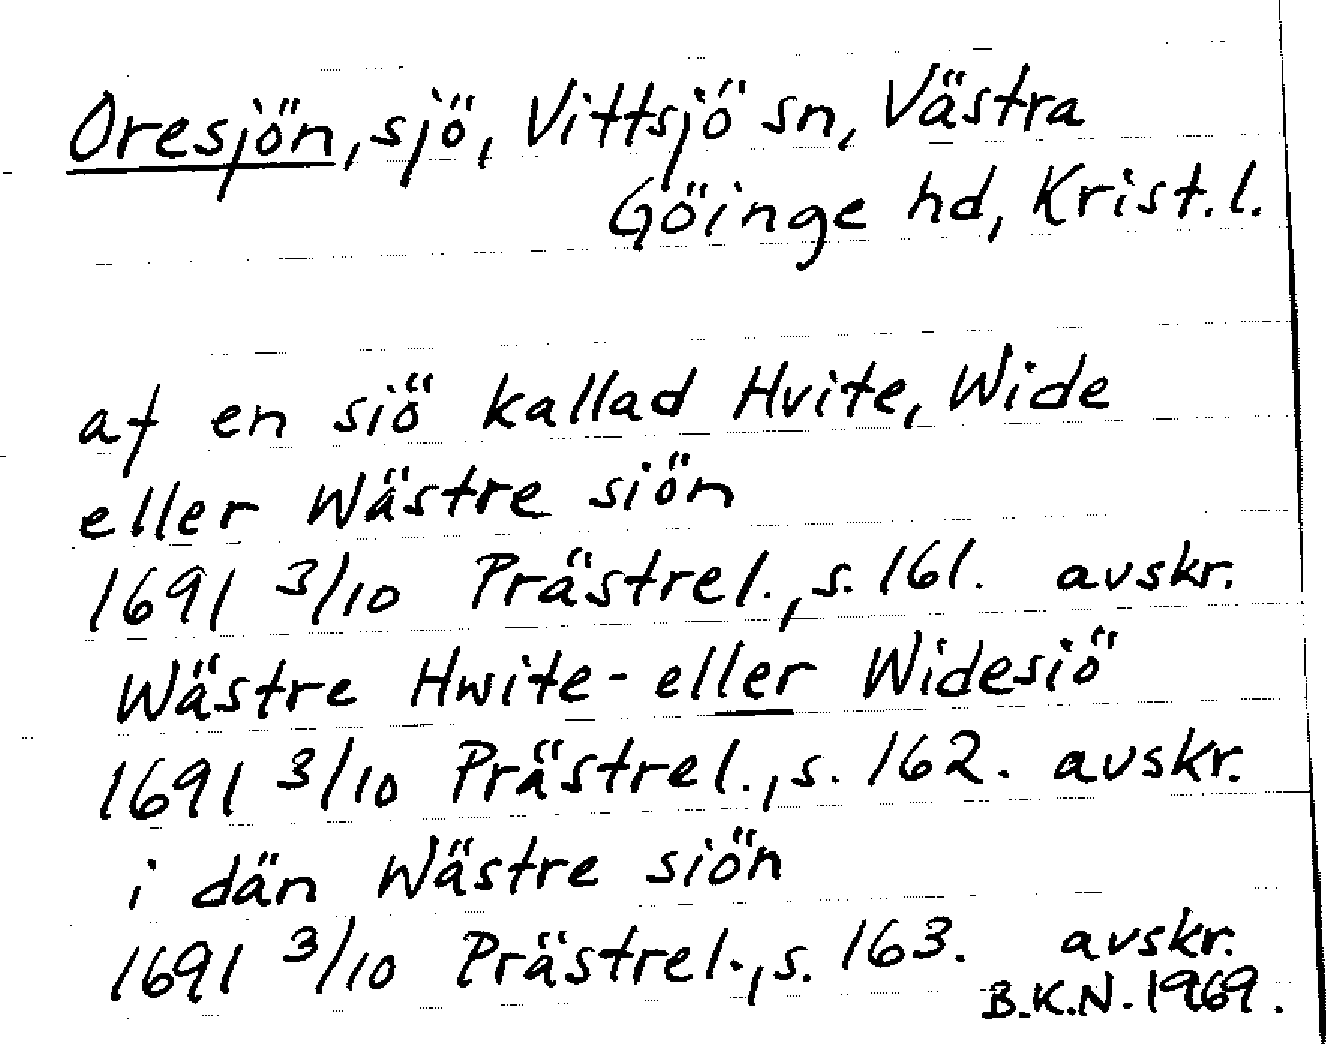 Oresjön, sjö, Vittsjö sn, Västra
Göinge hd, Krist. l.
af en siö kallad Hvite, Wide
eller Wästre siön
1691 3/10 Prästrel., s. 161. avskr.
Wästre Hwite- eller Widesiö
1691 3/10 Prästrel., s. 162. avskr.
i dän Wästre siön
1691 3/10 Prästrel., s. 163. avskr.
B.K.N. 1969.